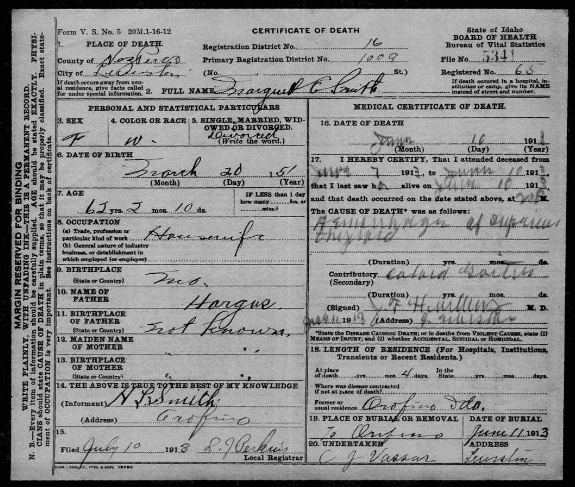 Form V. S. No. 5 20M.1-16-12
CERTIFICATE OF DEATH
State of Idaho
BOARD OF HEALTH
Bureau of Vital Statistics
1. PLACE OF DEATH.
County of Nez Perce
City of Lewiston
Registration District No. 16
Primary Registration District No. 1009
File No. 5341
(No. St.)
Registered No. 63
If death occurred away from usual residence, give facts called for under special information.
If death occurred in a hospital, institution or camp, give its NAME instead of street and number.
2. FULL NAME Margaret E Smith
PERSONAL AND STATISTICAL PARTICULARS
3. SEX
F
4. COLOR OR RACE
W.
5. SINGLE, MARRIED, WIDOWED OR DIVORCED.
Divorced
(Write the word.)
6. DATE OF BIRTH
March 20 1851
(Month) (Day) (Year)
7. AGE
62 yrs. 2 mos. 10 ds.
IF LESS than 1 day
how many hrs. or min.?
8. OCCUPATION
(a) Trade, profession or particular kind of work Housewife
(b) General nature of industry business, or establishment in which employed (or employer)
9. BIRTHPLACE
(State or Country) Mo.
10. NAME OF FATHER
Hargus
11. BIRTHPLACE OF FATHER
(State or Country) not known
12. MAIDEN NAME OF MOTHER
" "
13. BIRTHPLACE OF MOTHER
(State or Country) " "
14. THE ABOVE IS TRUE TO THE BEST OF MY KNOWLEDGE
(Informant) Smith
(Address) Orofino
15.
Filed July 10 1913
Local Registrar
MEDICAL CERTIFICATE OF DEATH.
16. DATE OF DEATH.
June 10 1913
(Month) (Day) (Year)
17. I HEREBY CERTIFY, That I attended deceased from
7 1913, to June 10 1913,
that I last saw h alive on June 10 1913,
and that death occurred on the date stated above, at M.
The CAUSE OF DEATH* was as follows:
of
Thyroid
(Duration) yrs. mos. ds.
Contributory Goiter
(Secondary)
(Duration) yrs. mos. ds.
(Signed) M. D.
191 (Address)
*State the DISEASE CAUSING DEATH; or in deaths from VIOLENT CAUSES, state (1) MEANS OF INJURY; and (2) whether ACCIDENTAL, SUICIDAL or HOMICIDAL.
18. LENGTH OF RESIDENCE (For Hospitals, Institutions, Transients or Recent Residents.)
At place of death yrs. mos. 4 days. In the State yrs. mos. ds.
Where was disease contracted if not at place of death?
Former or usual residence Orofino Ida.
19. PLACE OF BURIAL OR REMOVAL
To Orofino
DATE OF BURIAL
June 11 1913
20. UNDERTAKER
C J Vassar
ADDRESS
Lewiston
MARGIN RESERVED FOR BINDING
WRITE PLAINLY, WITH UNFADING INK—THIS IS A PERMANENT RECORD.
N. B.—Every item of information should be carefully supplied. AGE should be stated EXACTLY. PHYSICIANS should state CAUSE OF DEATH in plain terms, so that it may be properly classified. Exact statement of OCCUPATION is very important. See instructions on back of certificate.